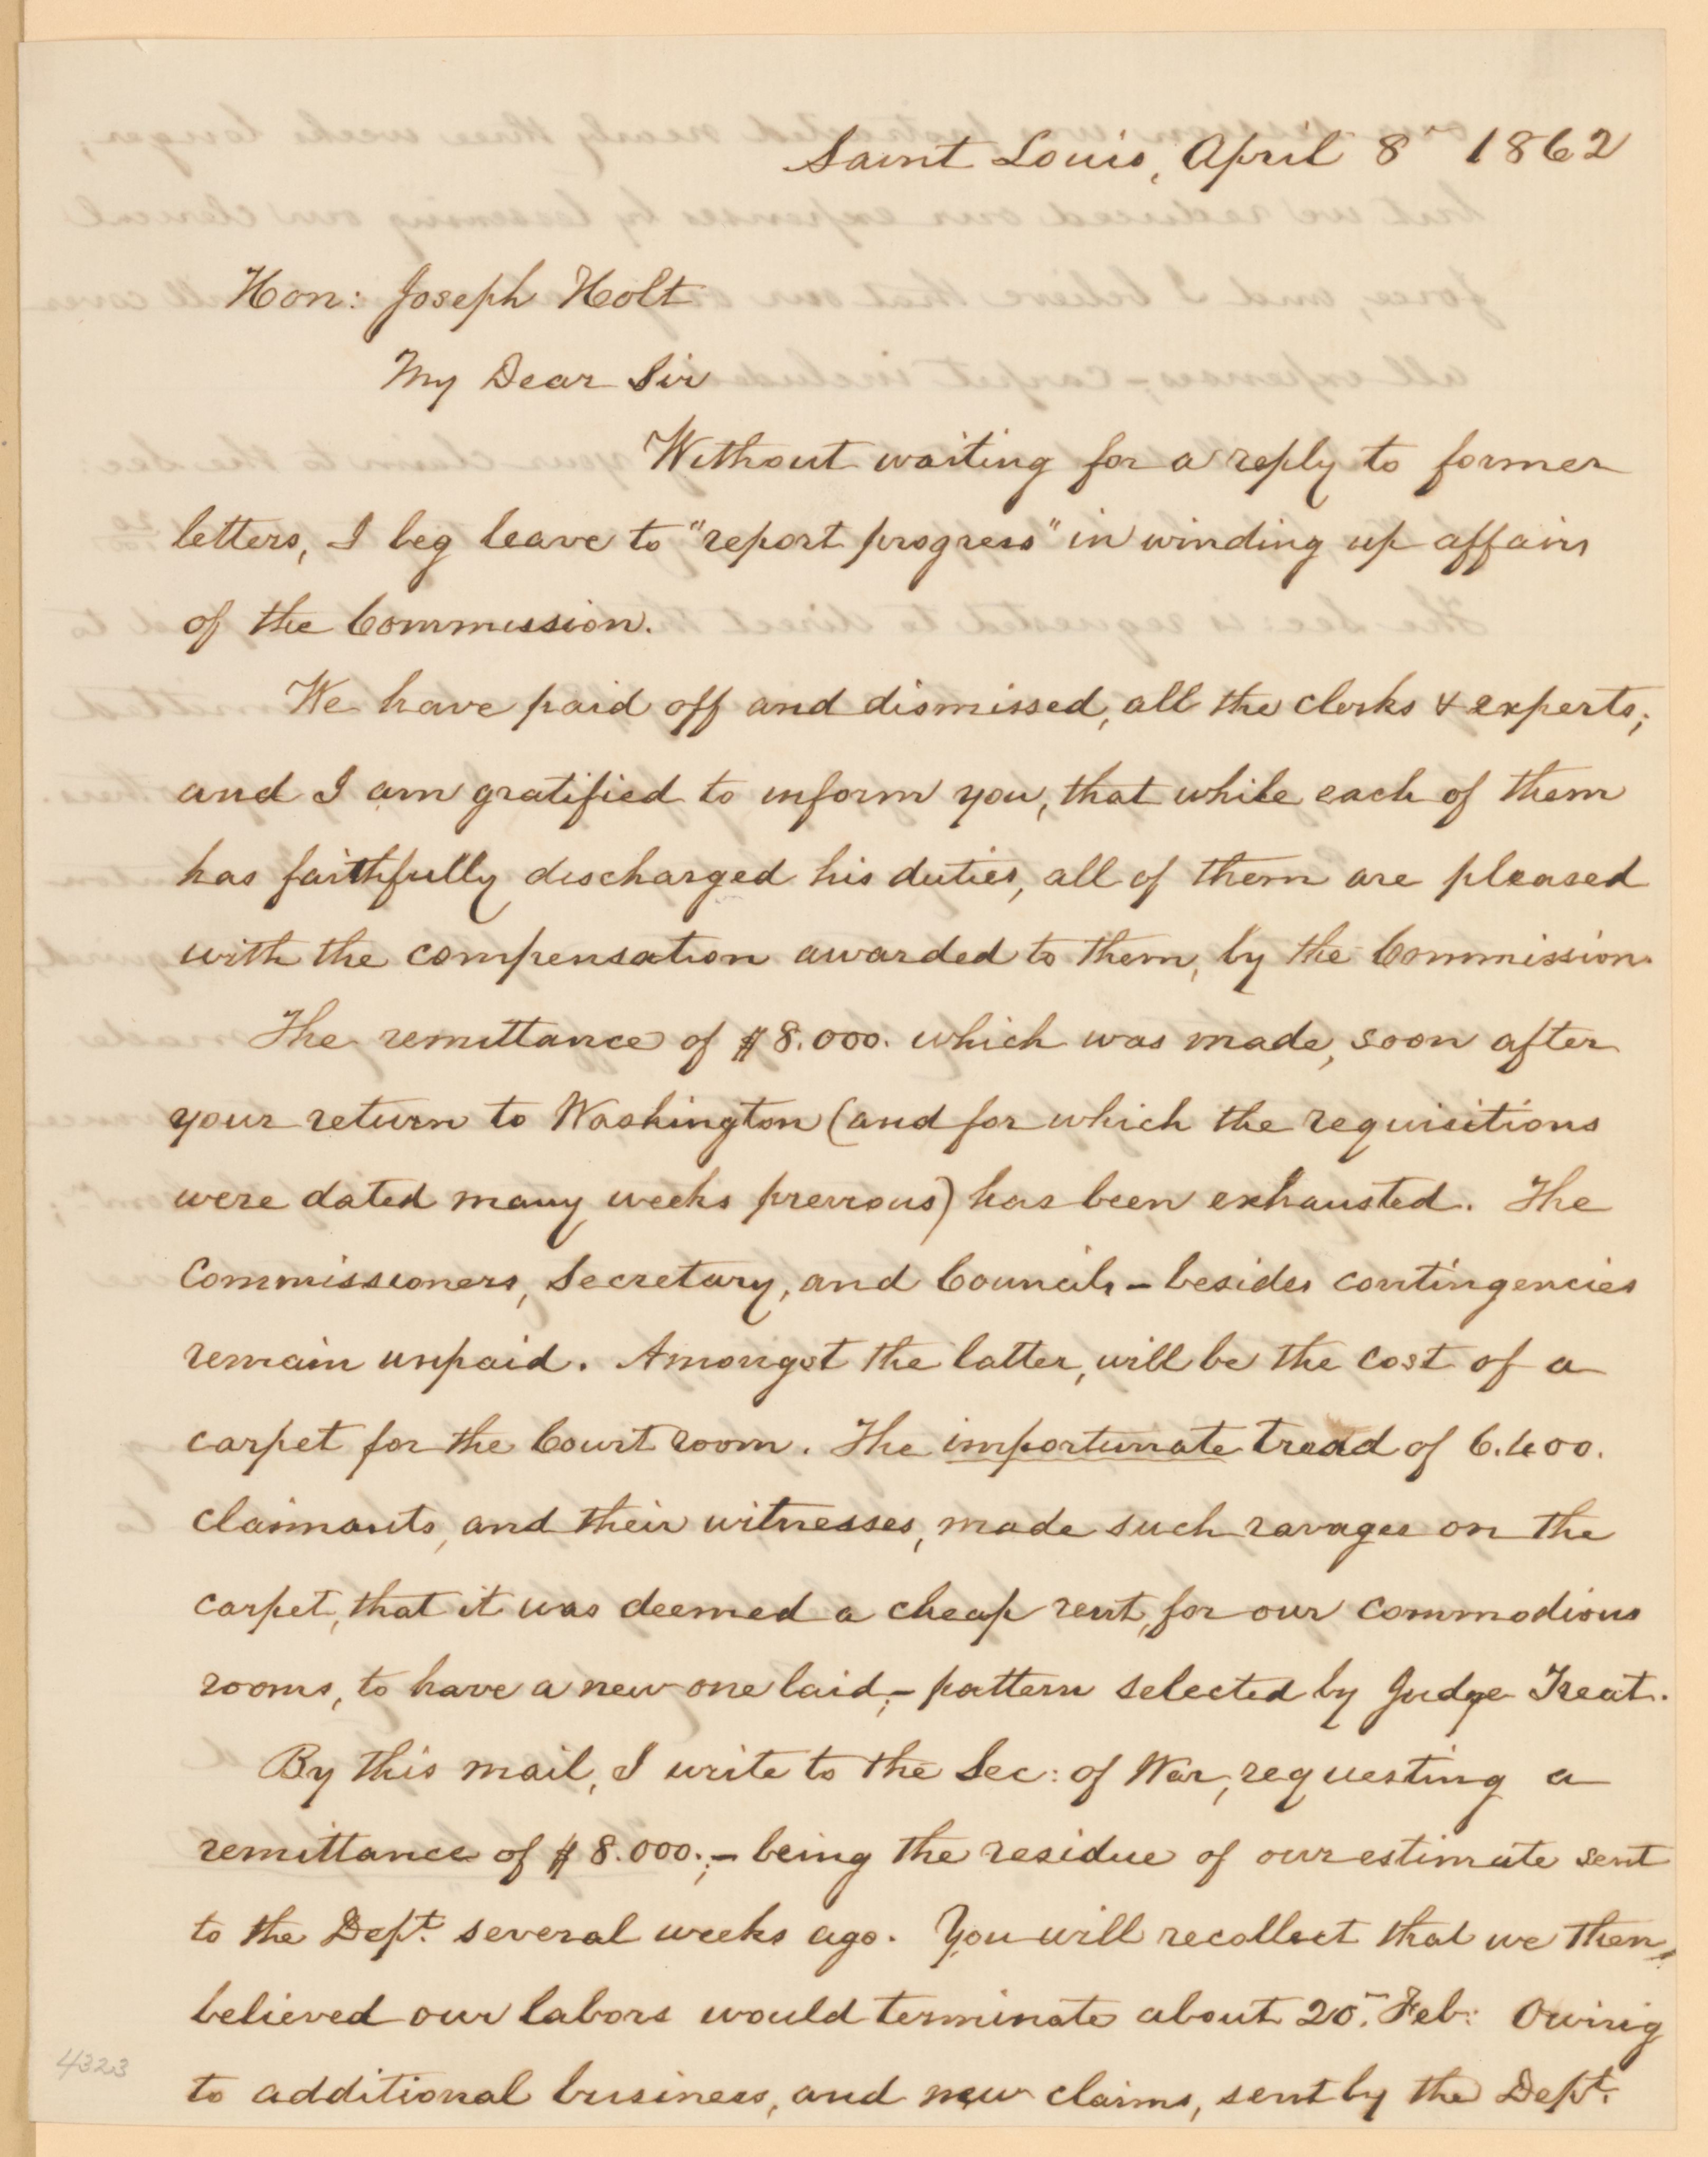 Saint Louis, April 8" 1862
Hon: Joseph Holt
My Dear Sir
Without waiting for a reply to former
letters, I beg leave to "report progress" in winding up affairs
of the Commission.
We have paid off and dismissed, all the clerks & experts;
and I am gratified to inform you, that while each of them
has faithfully discharged his duties, all of them are pleased
with the compensation awarded to them, by the Commission.
The remittance of $8.000. which was made, soon after
your return to Washington (and for which the requisitions
were dated many weeks previous) has been exhausted. The
Commissioners, Secretary, and Councils – besides contingencies
remain unpaid. Amongst the latter, will be the cost of a
carpet for the Court room. The importunate tread of 6.400.
claimants, and their witnesses, made such ravages on the
carpet, that it was deemed a cheap rent, for our commodious
rooms, to have a new one laid; – pattern selected by Judge Treat.
By this mail, I write to the Sec: of War, requesting a
remittance of $8.000.; – being the residue of our estimate sent
to the Dept. several weeks ago. You will recollect that we then,
believed our labors would terminate about 20". Feb: Owing
to additional business, and new claims, sent by the Dept.
4323